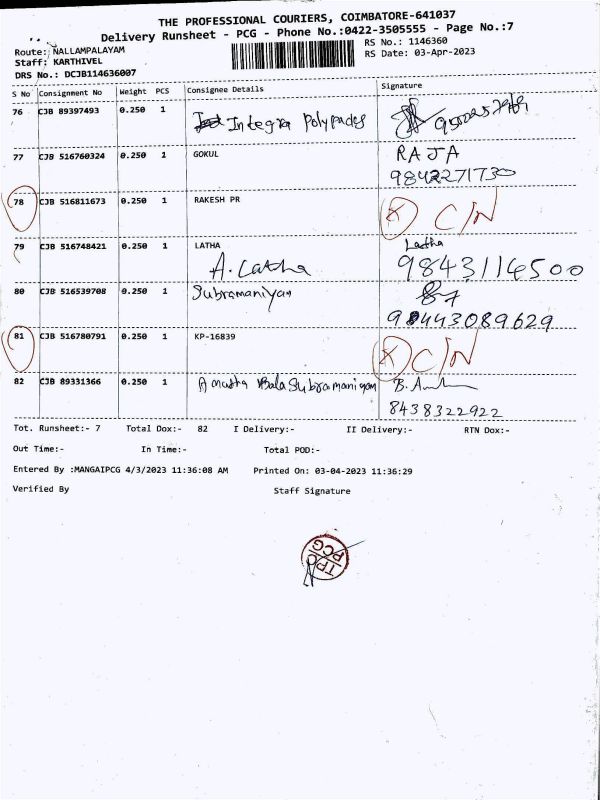 THE PROFESSIONAL COURIERS, COIMBATORE-641037
Delivery Runsheet - PCG - Phone No.:0422-3505555 - Page No.:7
Route: NALLAMPALAYAM RS No.: 1146360
Staff: KARTHIVEL RS Date: 03-Apr-2023
DRS No.: DCJB114636007
S No Consignment No Weight PCS Consignee Details Signature
76 CJB 89397493 0.250 1 Integra Polypades
77 CJB 516760324 0.250 1 GOKUL RAJA
9842271730
78 CJB 516811673 0.250 1 RAKESH PR X C/N
79 CJB 516748421 0.250 1 LATHA Latha
A. Latha 9843114500
80 CJB 516539708 0.250 1 Subramaniyan
81 CJB 516780791 0.250 1 KP-16839 X C/N
82 CJB 89331366 0.250 1 Bala Subramaniyam
8438322922
Tot. Runsheet:- 7 Total Dox:- 82 I Delivery:- II Delivery:- RTN Dox:-
Out Time:- In Time:- Total POD:-
Entered By :MANGAIPCG 4/3/2023 11:36:08 AM Printed On: 03-04-2023 11:36:29
Verified By Staff Signature
TPC
PCG